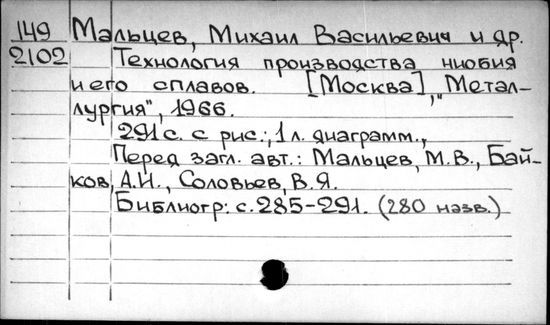 149 Мальцев, Михаил Васильевич и др.
2102 Технология производства ниобия
и его сплавов. [Москва], "Метал-
лургия", 1966.
291 с. с рис.; 1 л. диаграмм.,
Перед загл. авт.: Мальцев, М.В., Бай-
ков, А.И., Соловьев, В.Я.
Библиогр: с. 285-291. (280 назв.)